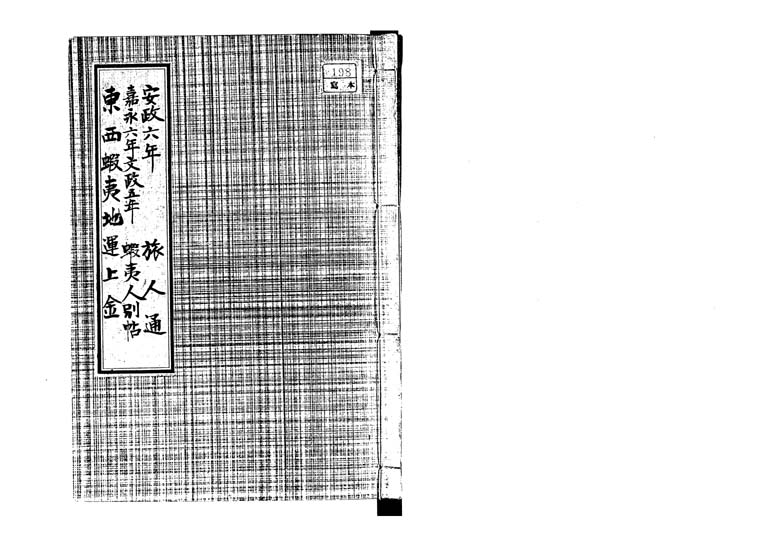 198
寫本
安政六年 旅人通
嘉永六年文政五年 蝦夷人別帖
東西蝦夷地運上金